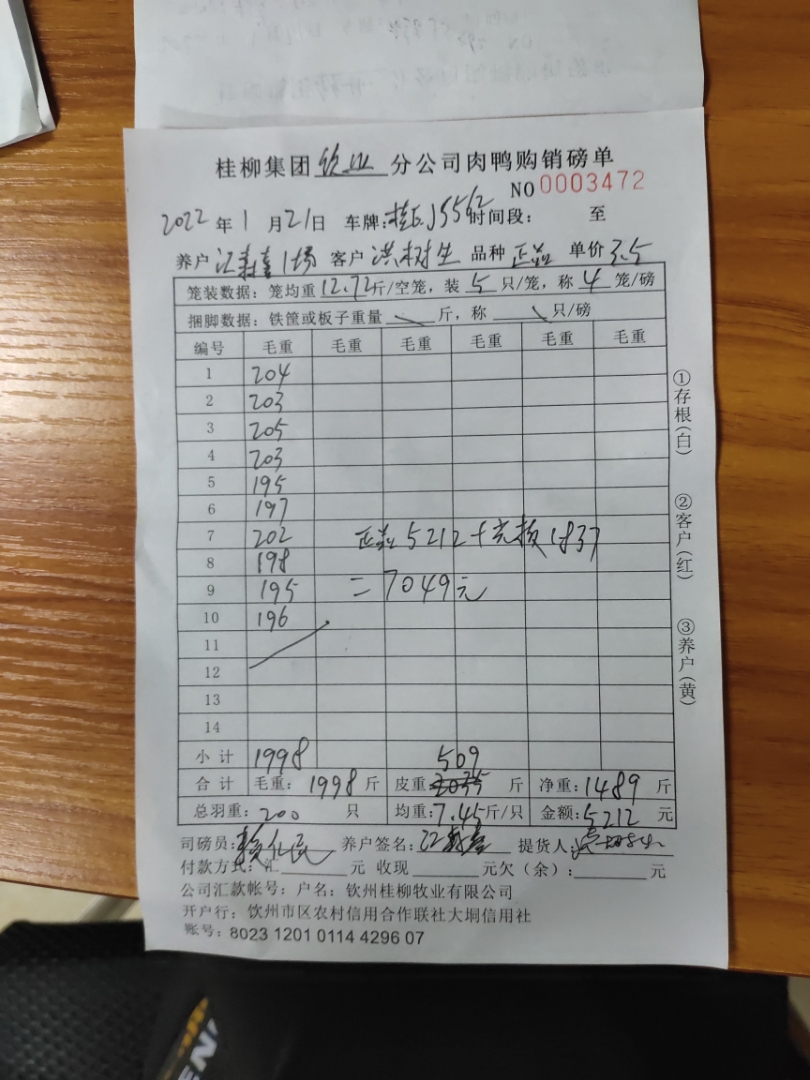 桂柳集团 钦州 分公司肉鸭购销磅单
NO 0003472
2022 年 1 月 21 日 车牌: 时间段: 至
养户 1场 客户 洪树生 品种 正品 单价 3.5
笼装数据: 笼均重 12.72 斤/空笼, 装 5 只/笼, 称 4 笼/磅
捆脚数据: 铁筐或板子重量 \ 斤, 称 \ 只/磅
编号 毛重 毛重 毛重 毛重 毛重 毛重
1 204
2 203
3 205
4 203
5 195
6 197
7 202 正品 5212 + 1837
8 198
9 195 = 7049元
10 196
11
12
13
14
小计 1998 509
合计 毛重: 1998 斤 皮重: 斤 净重: 1489 斤
总羽重: 200 只 均重: 7.45 斤/只 金额: 5212 元
司磅员: 养户签名: 提货人:
付款方式: 汇 元 收现 元欠(余): 元
公司汇款帐号: 户名: 钦州桂柳牧业有限公司
开户行: 钦州市区农村信用合作联社大垌信用社
账号: 8023 1201 0114 4296 07
①存根(白)
②客户(红)
③养户(黄)